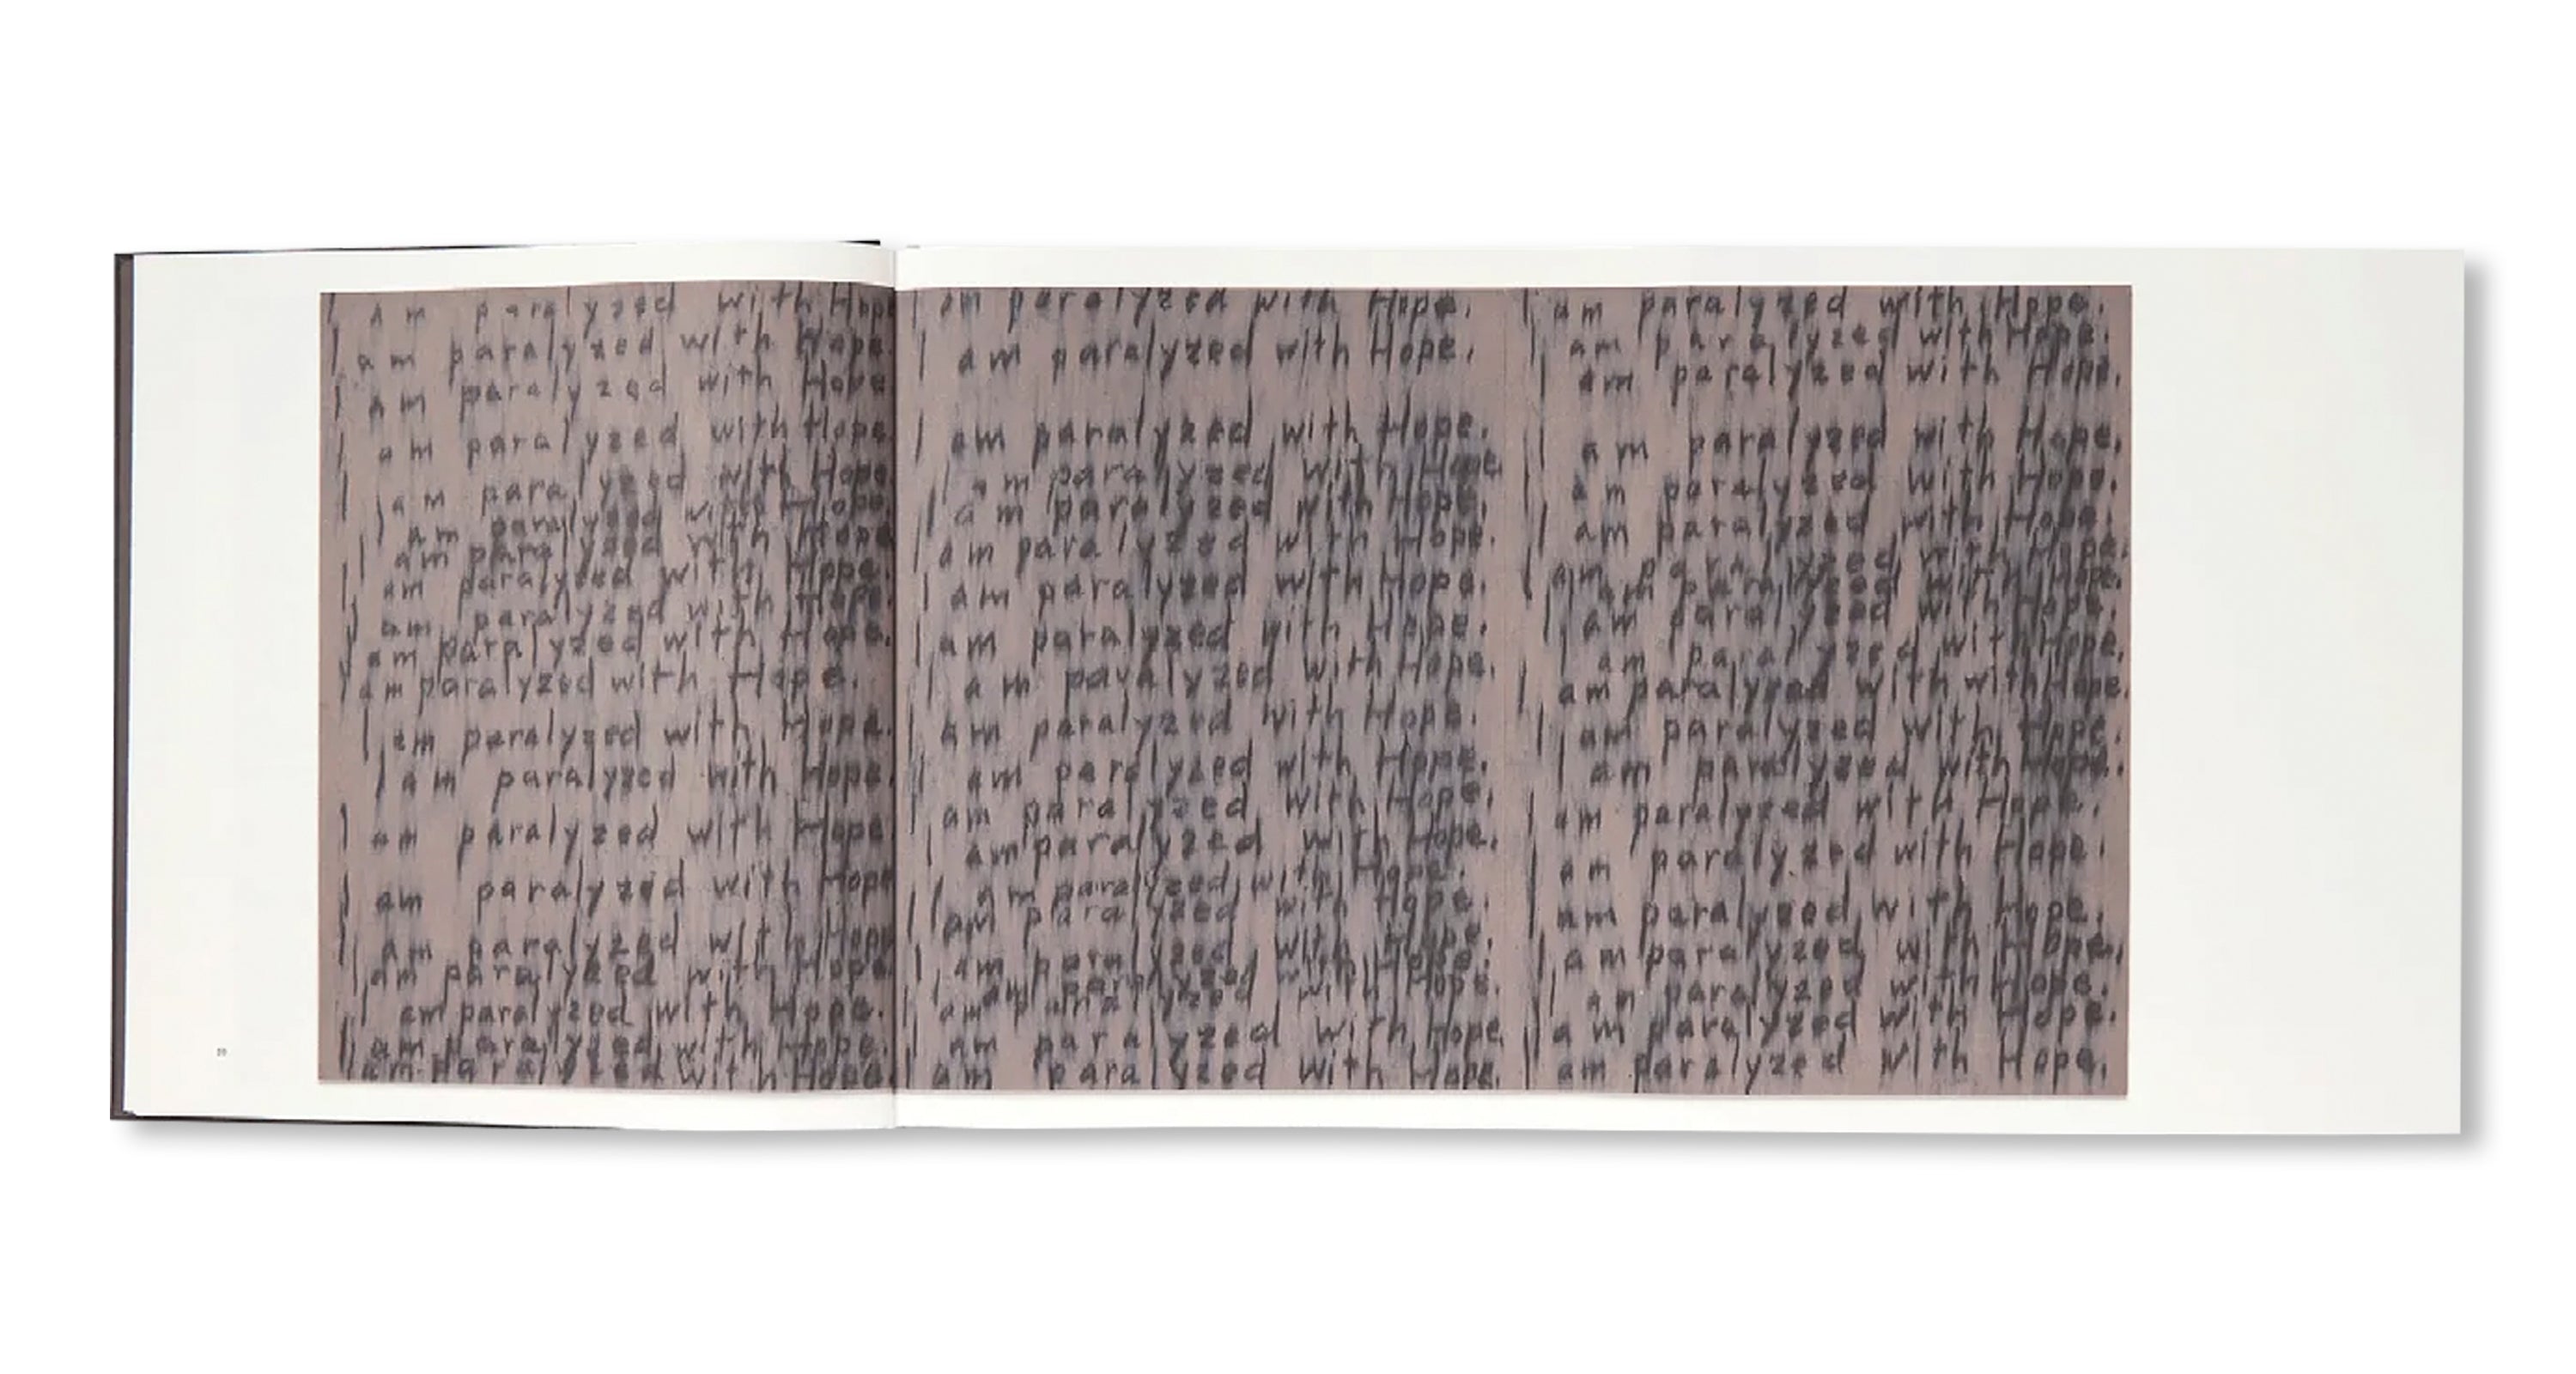 I am paralyzed with Hope
I am paralyzed with Hope.
I am paralyzed with Hope
I am paralyzed with Hope.
I am paralyzed with Hope
I am paralyzed with Hope
I am paralyzed with Hope
I am paralyzed with Hope.
I am paralyzed with Hope.
I am paralyzed with Hope.
I am paralyzed with Hope.
I am paralyzed with Hope.
I am paralyzed with Hope.
I am paralyzed with Hope
I am paralyzed with Hope
I am paralyzed with Hope
I am paralyzed with Hope
I am paralyzed with Hope.
I am paralyzed with Hope.
I am paralyzed with Hope.
I am paralyzed with Hope.
I am paralyzed with Hope.
I am paralyzed with Hope.
I am paralyzed with Hope.
I am paralyzed with Hope.
I am paralyzed with Hope.
I am paralyzed with Hope.
I am paralyzed with Hope.
I am paralyzed with Hope.
I am paralyzed with Hope.
I am paralyzed with Hope.
I am paralyzed with Hope.
I am paralyzed with Hope.
I am paralyzed with Hope.
I am paralyzed with Hope.
I am paralyzed with Hope.
I am paralyzed with Hope.
I am paralyzed with Hope.
I am paralyzed with Hope
I am paralyzed with Hope.
I am paralyzed with Hope.
I am paralyzed with Hope.
I am paralyzed with Hope.
I am paralyzed with Hope.
I am paralyzed with Hope.
I am paralyzed with Hope.
I am paralyzed with Hope.
I am paralyzed with Hope.
I am paralyzed with Hope.
I am paralyzed with Hope.
I am paralyzed with with Hope.
I am paralyzed with Hope.
I am paralyzed with Hope.
I am paralyzed with Hope.
I am paralyzed with Hope.
I am paralyzed with Hope.
I am paralyzed with Hope.
I am paralyzed with Hope.
I am paralyzed with Hope.
I am paralyzed with Hope.